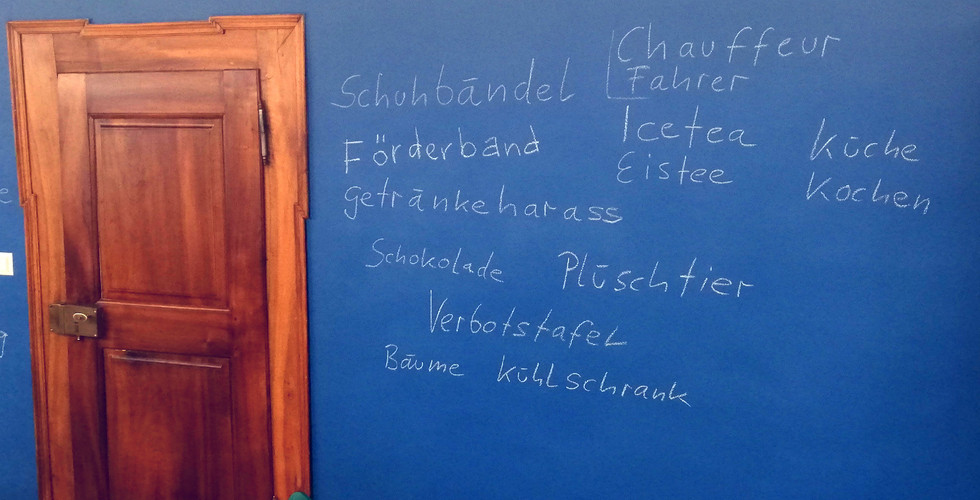 Schuhbändel
Chauffeur
Fahrer
Förderband
Icetea
Eistee
Küche
Kochen
getränkeharass
Schokolade
Plüschtier
Verbotstafel
Bäume
kühlschrank